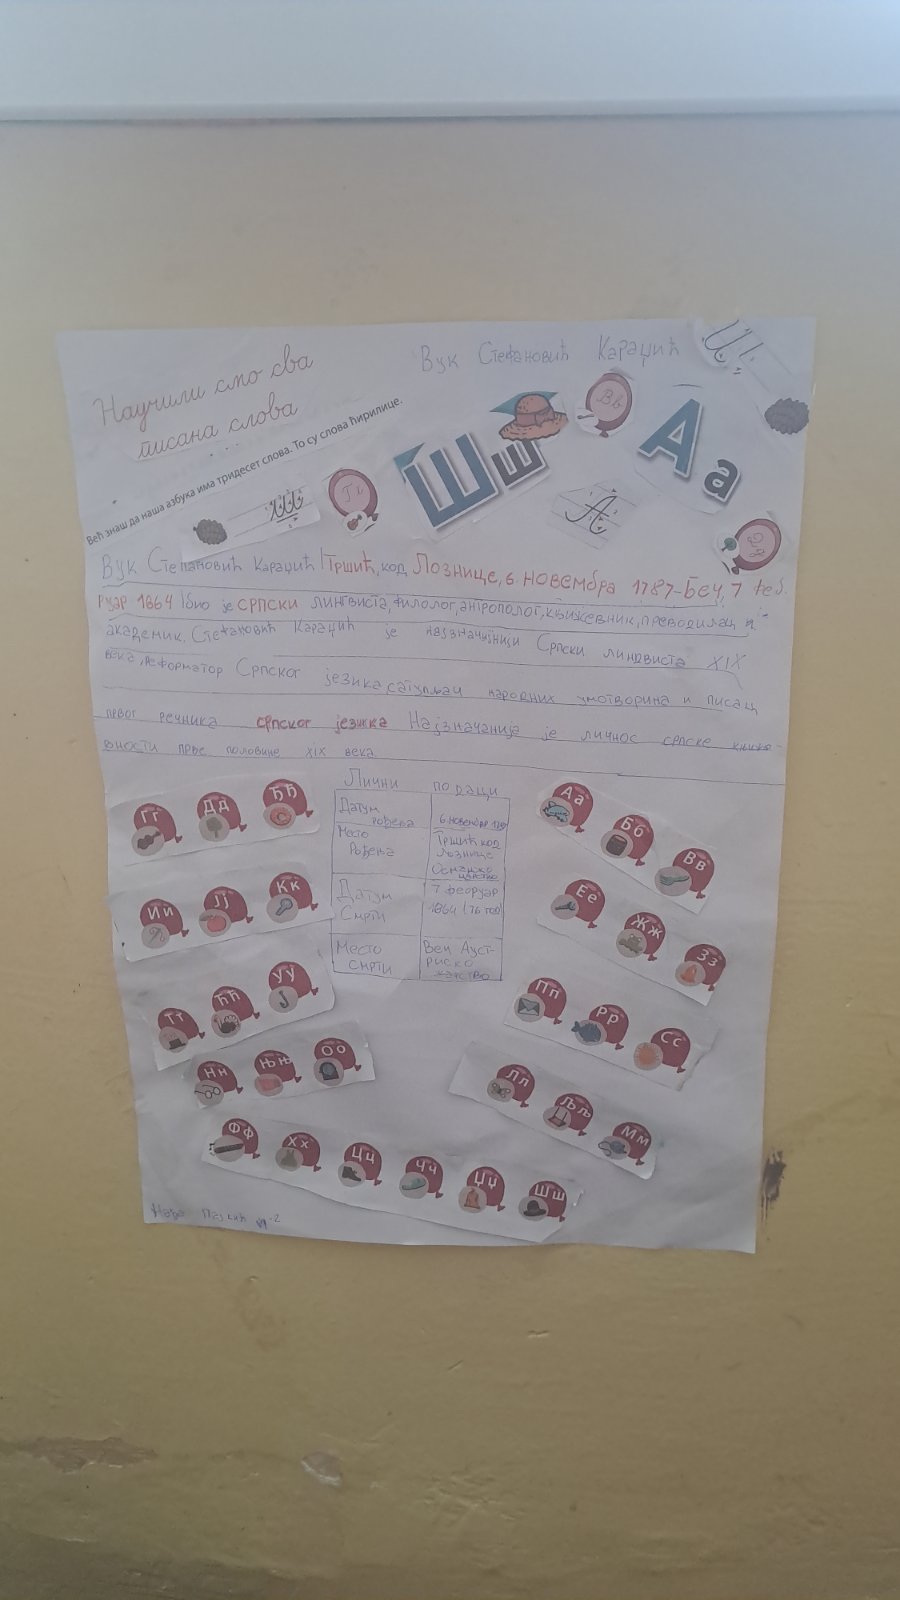 Научили смо сва
писана слова
Вук Стефановић Караџић
Већ знаш да наша азбука има тридесет слова. То су слова ћирилице.
Гг
Шш
Вв
Аа
А
Дд
Вук Стефановић Караџић Тршић, код Лознице, 6 новембра 1787-Беч, 7 феб.
руар 1864 био је српски лингвиста, филолог, антрополог, књижевник, преводилац и
академик. Стефановић Караџић је Српски лингвиста XIX
века, реформатор Српског језика, народних умотворина и писац
првог речника српског језика Најзначанија је личнос српске књиже
вности прве половине XIX века
Лични подаци
Датум рођења
6 новембар
Место Рођења
Тршић код
Лознице
царство
Датум Смрти
7 фебруар
1864 (76 год)
Место смрти
Беч Ауст-
риско
царство
Гг Дд Ђђ
Ии Јј Кк
Тт Ћћ Уу
Нн Њњ Оо
Фф Хх Цц Чч Џџ Шш
Аа Бб Вв
Ее Жж Зз
Пп Рр Сс
Лл Љљ Мм